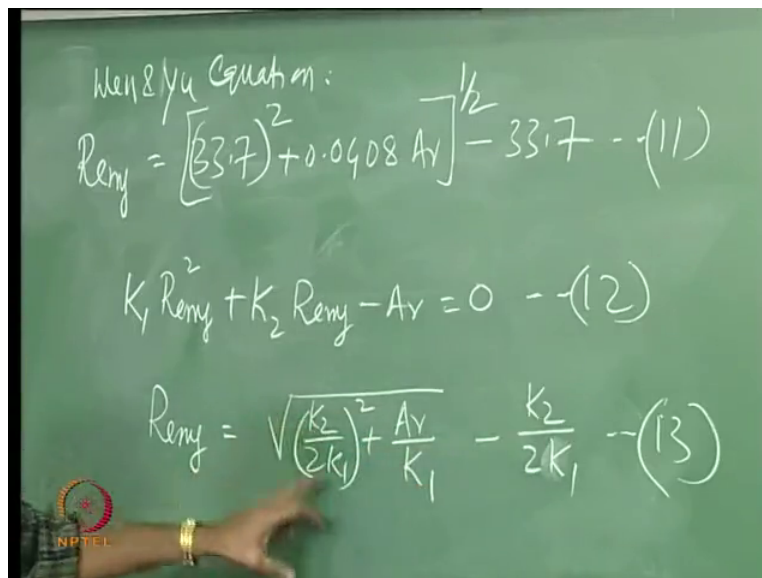 Wen & Yu Equation:
Remf = [(33.7)² + 0.0408 Ar]^1/2 - 33.7 --(11)
K₁ Remf² + K₂ Remf - Ar = 0 --(12)
Remf = √((K₂/2K₁)² + Ar/K₁) - K₂/2K₁ --(13)
NPTEL